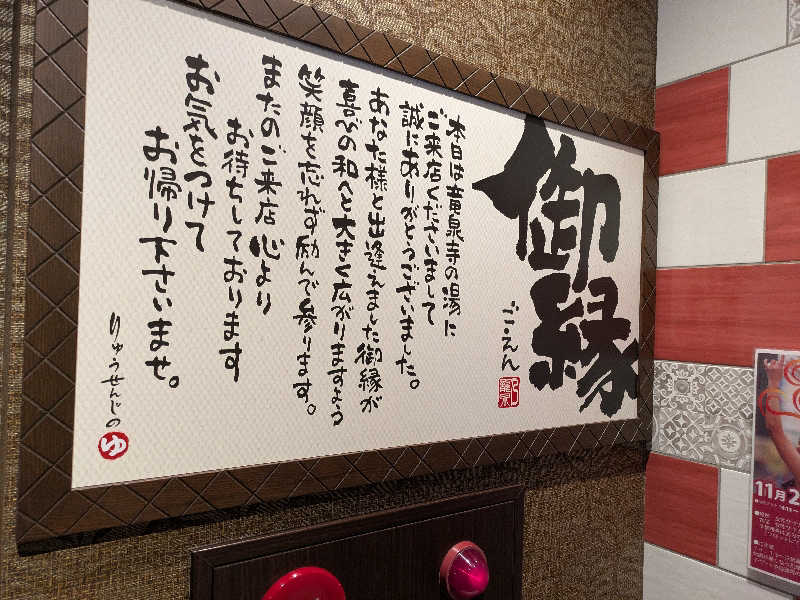 御縁
ご・えん
本日は竜泉寺の湯に
ご来店くださいまして
誠にありがとうございました。
あなた様と出逢えました御縁が
喜びの和へと大きく広がりますよう
笑顔を忘れず励んで参ります。
またのご来店 心より
お待ちしております
お気をつけて
お帰り下さいませ。
りゅうせんじの ゆ
11月2